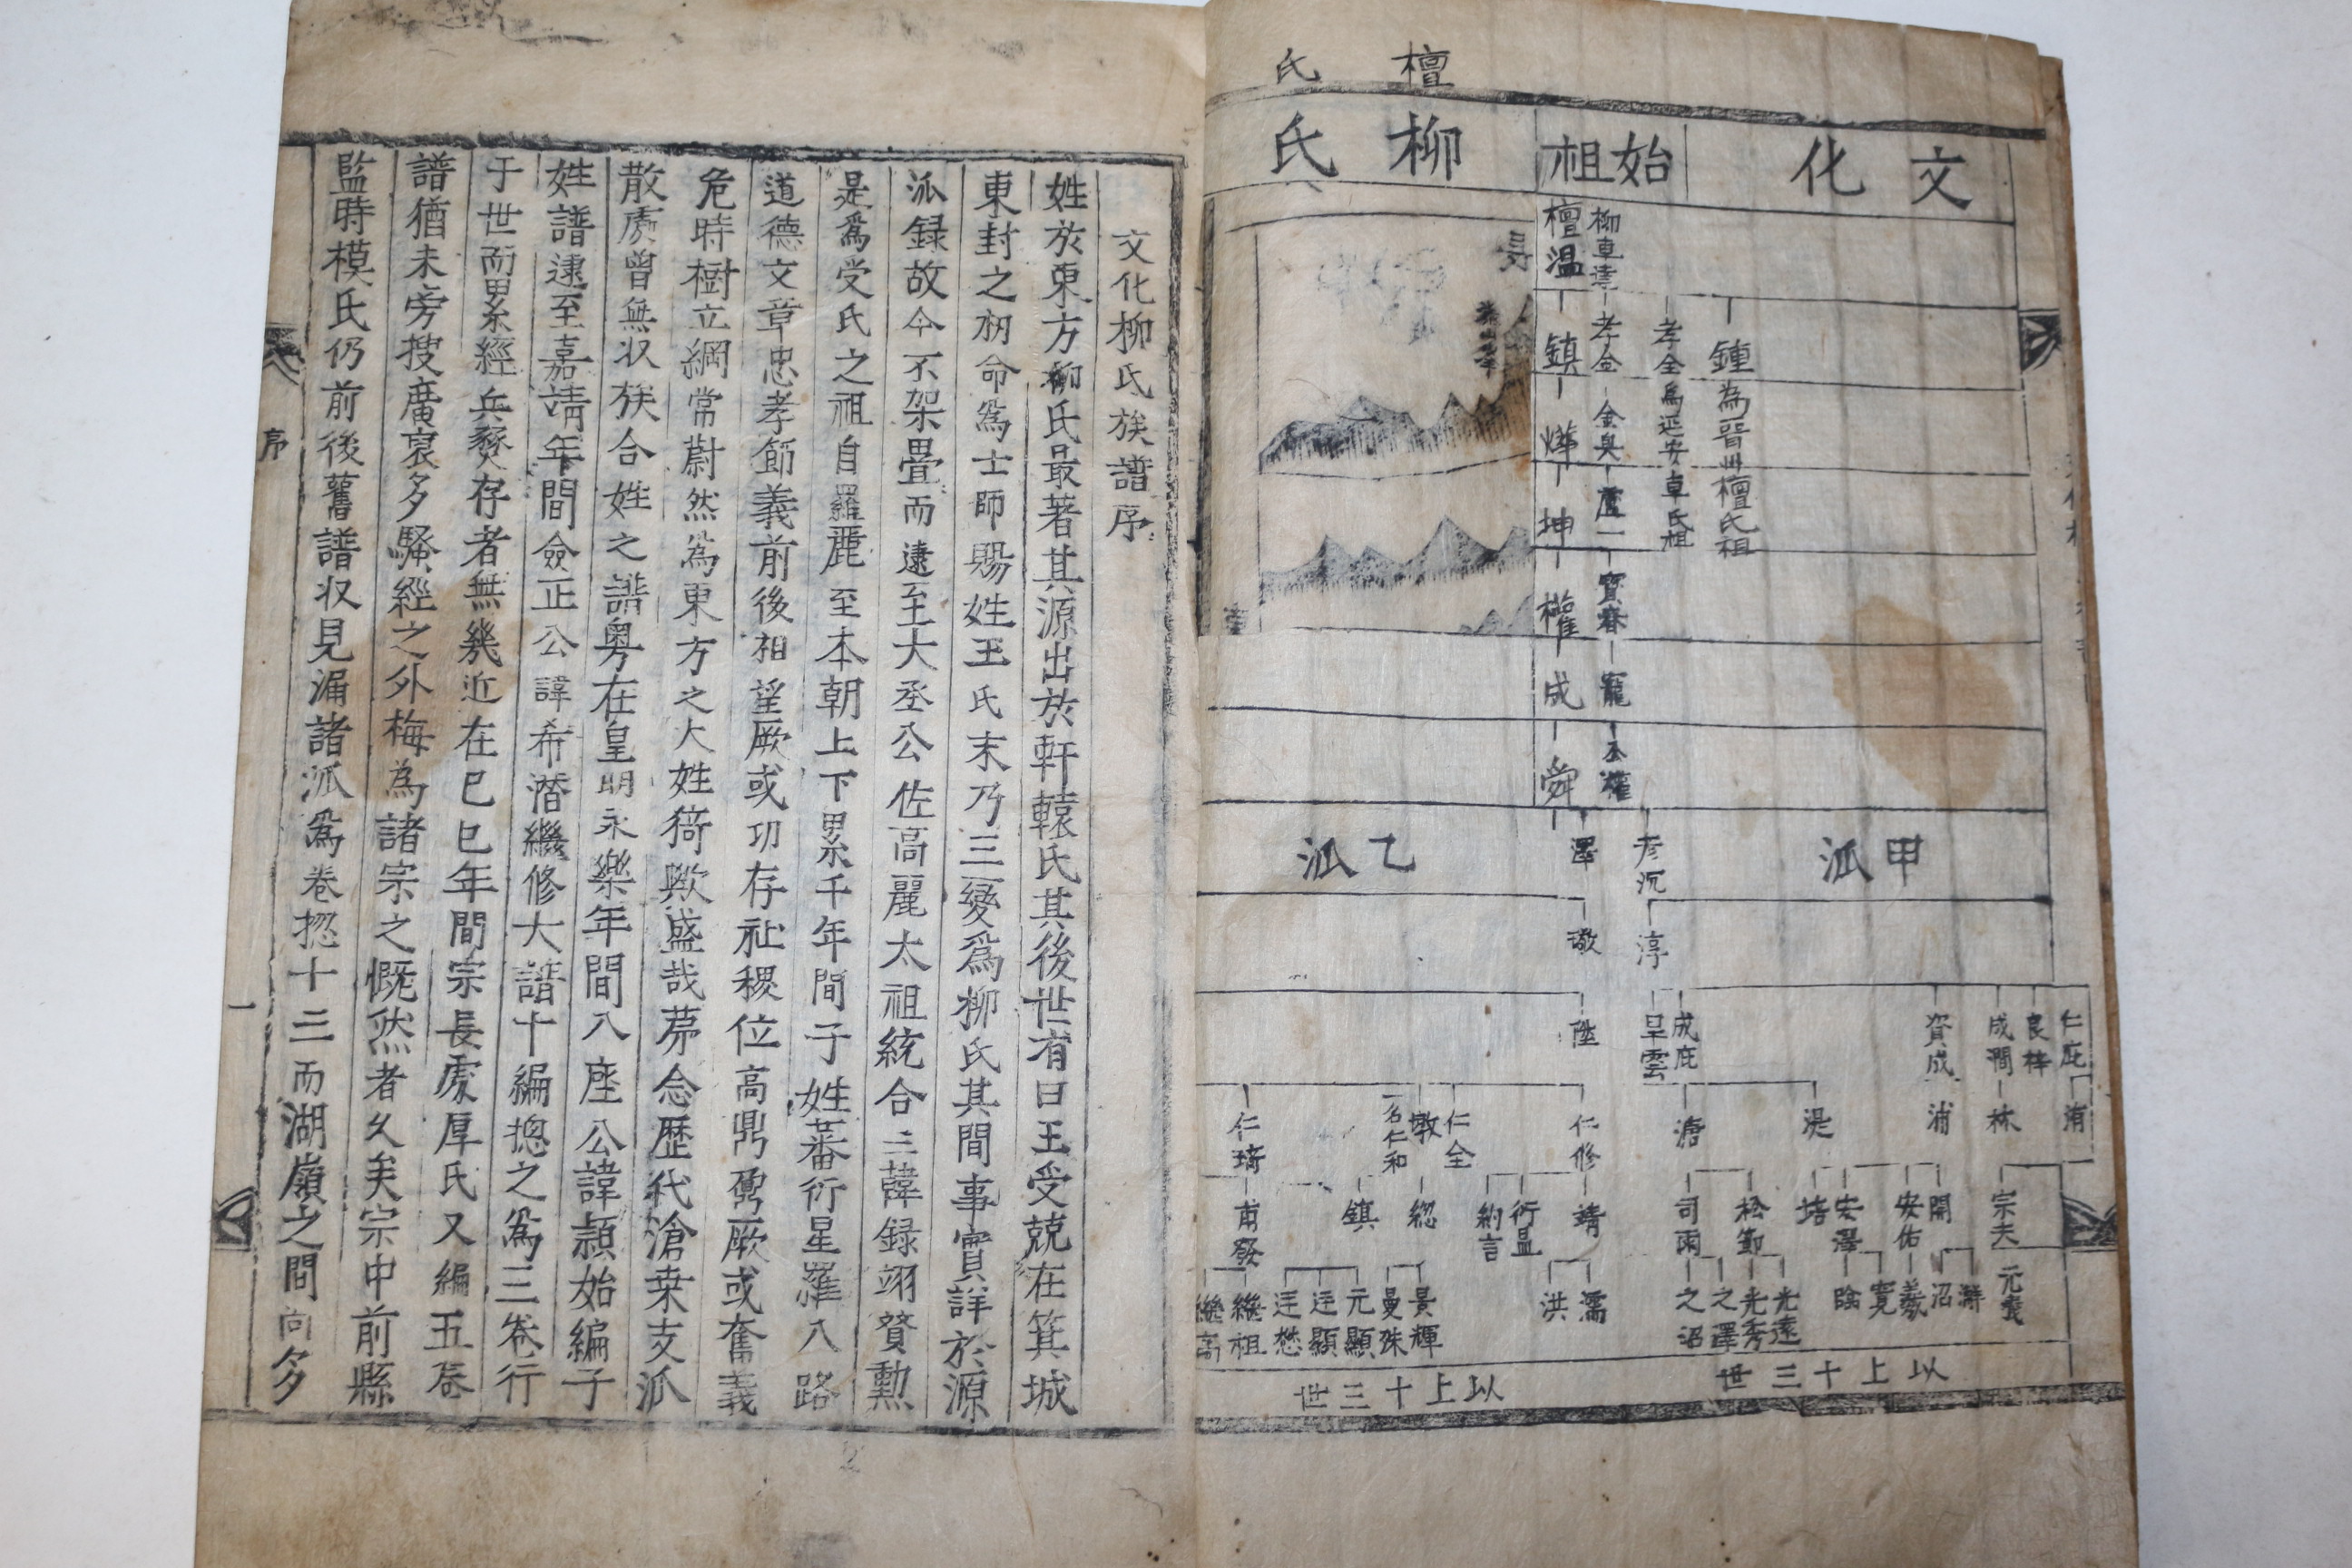 檀氏
文化
始祖
柳氏
柳車達
檀溫
鍾為晉州檀氏祖
孝全為延安卓氏祖
孝金
鎮
金奐
燁
盧一
坤
寶春
權
寵
成
公權
舜
甲派
彦沉
澤
乙派
淳
璥
仁庇
良梓
成澗
資成
成庇
旱雲
陞
洧
林
浦
湜
溏
仁修
仁全
墩
一名仁和
仁琦
宗夫
開
安佑
安澤
培
松節
司雨
靖
衍昷
納言
總
鎮
甫發
沼
羲
寬
陰
光遠
光秀
之澤
之沼
濡
洪
景輝
曼殊
元顯
廷顯
廷愁
繼祖
以上十三世
以上十三世
文化柳氏族譜序
姓於東方柳氏最著其源出於軒轅氏其後世有曰王受兢在箕城
東封之初命為士師賜姓王氏末乃三變為柳氏其間事實詳於源
派録故今不架疊而逮至大丞公佐高麗太祖統合三韓録翊贊勳
是為受氏之祖自羅麗至本朝上下累千年間子姓蕃衍星羅八路
道德文章忠孝節義前後相望厥或功存社稷位高鼎鼐厥或奮義
危時樹立綱常蔚然為東方之大姓猗歟盛哉第念歷代滄桑支派
散處曾無収族合姓之譜粤在皇明永樂年間八座公諱頴始編子
姓譜逮至嘉靖年間僉正公諱希潛繼修大譜十編摠之為三卷行
于世而累經兵燹存者無幾近在己巳年間宗長處厚氏又編五卷
譜猶未旁搜廣裒多騷經之外梅為諸宗之慨然者久矣宗中前縣
監時模氏仍前後舊譜収見漏諸派為卷摠十三而湖嶺之間尚多
序
一
2